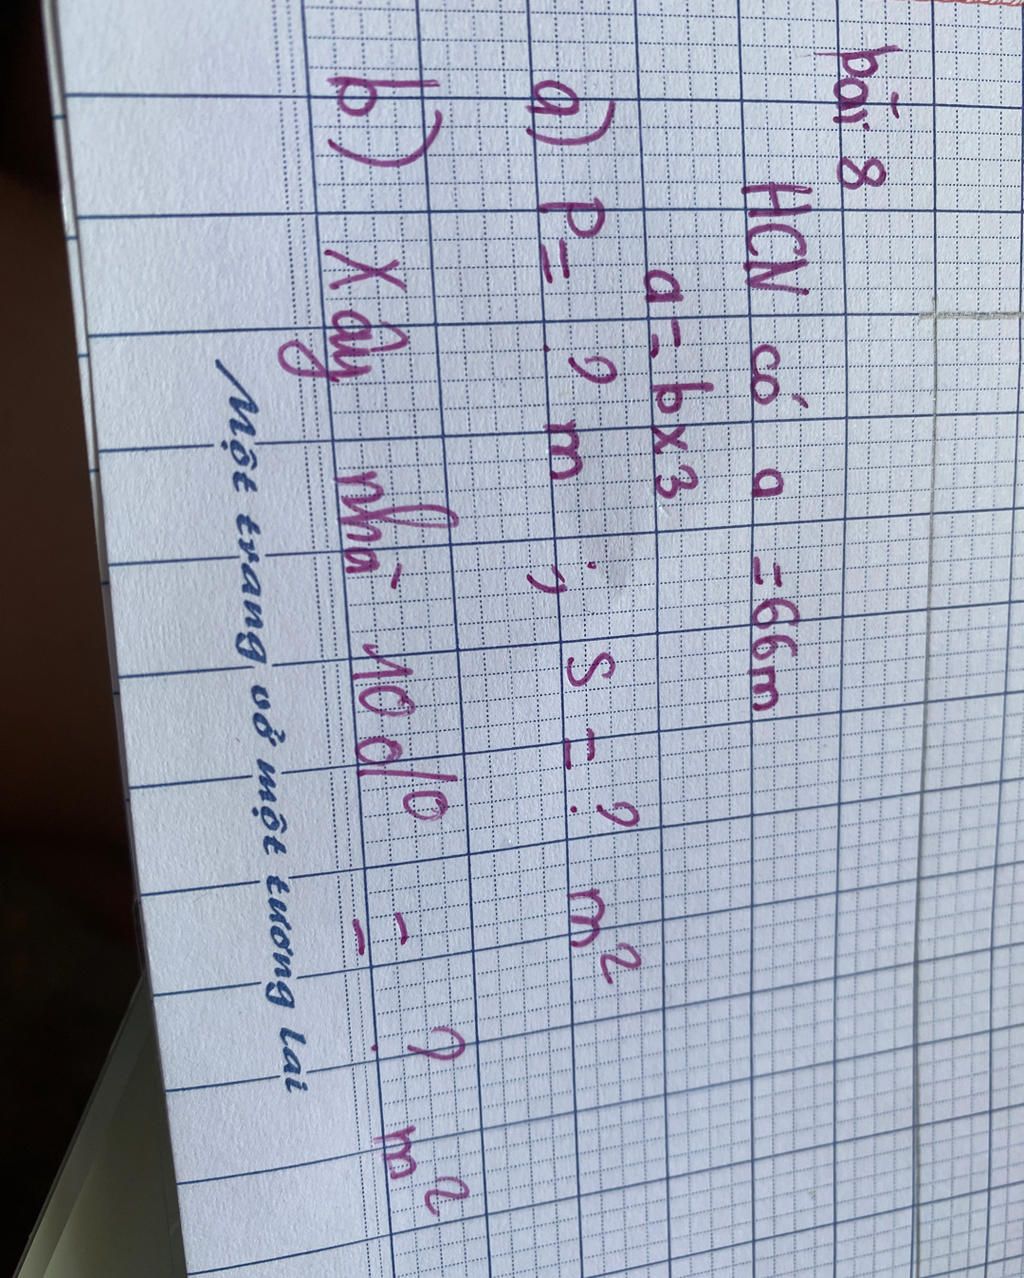 bài 8
HCN có a = 66m
a = b x 3
a) P = ? m ; S = ? m²
b) Xây nhà 10% = ? m²
Một trang vở một tương lai